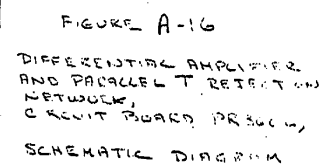 FIGURE A-16
DIFFERENTIAL AMPLIFIER
AND PARALLEL T REJECTION
NETWORK,
CIRCUIT BOARD
SCHEMATIC DIAGRAM